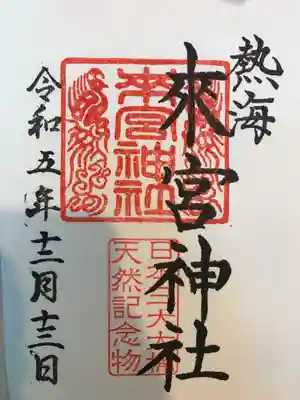 熱海
來宮神社
令和五年十二月十三日
來宮神社
天然記念物